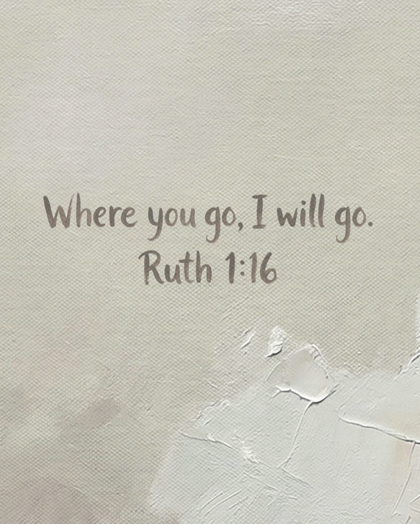 Where you go, I will go.
Ruth 1:16